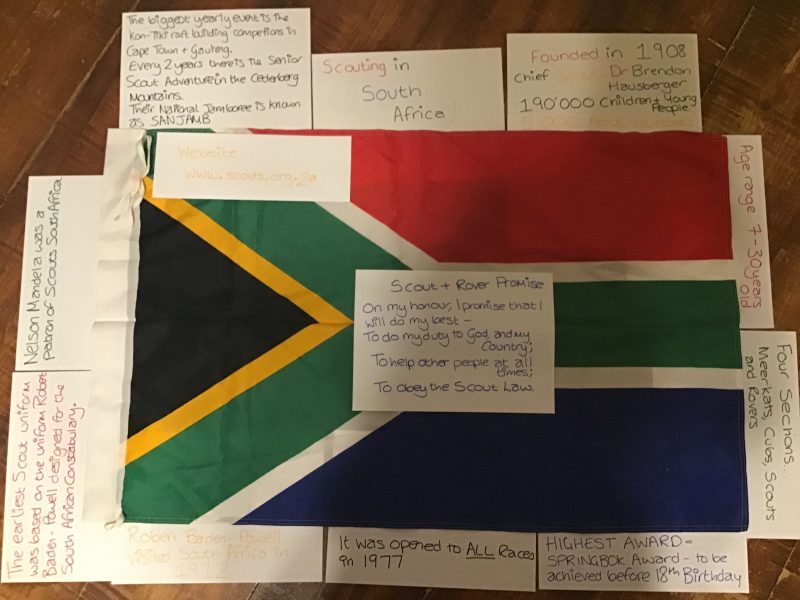 The biggest yearly event is the
Kon-Tiki raft building competions in
Cape Town + Gauteng.
Every 2 years there is the Senior
Scout Adventure in the Cederberg
Mountains.
Their National Jamboree is known
as SANJAMB
Scouting in
South
Africa!
Founded in 1908
Chief Scout Dr Brendon
Hausberger
190'000 Children + Young
People
5'000 Adult
Website
www.scouts.org.za
Age range: 7-30 years
old
Nelson Mandela was a
patron of Scouts South Africa
Scout + Rover Promise
On my honour, I promise that I
will do my best -
To do my duty to God, and my
Country;
To help other people at all
times;
To obey the Scout Law.
Four Sections...
Meerkats, Cubs, Scouts
and Rovers
The earliest Scout uniform
was based on the uniform Robert
Baden-Powell designed for the
South African Constabulary.
Robert Baden-Powell
visited South Africa in
1912
It was opened to ALL Races
in 1977
HIGHEST AWARD =
SPRINGBOK Award - to be
achieved before 18th Birthday